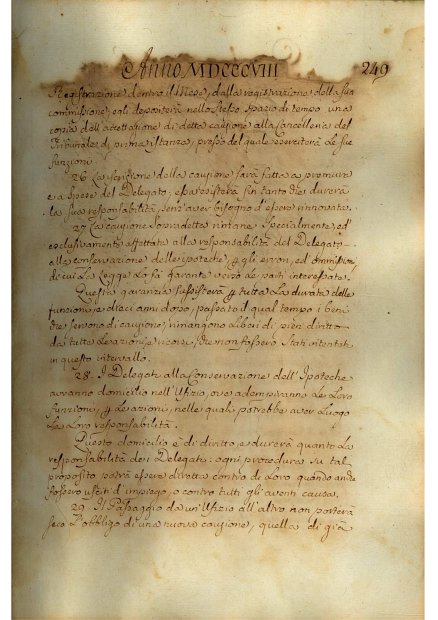 Anno MDCCCVIII 249
Registrazione dentro il Mese, dalla registrazione della sua
commissione, egli deporterà nello stesso spazio di tempo una
copia dell'accettazione di detta cauzione alla Cancelleria del
Tribunale di prima istanza, presso del quale eserciterà le sue
funzioni.
26. La iscrizione della cauzione sarà fatta a premure
e a spese del Delegato, essa sisterà sin tanto che durerà
la sua responsabilità, senz'aver bisogno d'essere rinnovata.
27. La cauzione sopradetta rimane specialmente, ed
esclusivamente affettata alla responsabilità del Delegato
alla conservazione delle ipoteche, per gli errori, ed ommissioni
di cui La Legge Lo fà garante verso Le parti interessate.
Questa garanzia sussisterà per tutta La durata delle
funzioni, e dieci anni dopo, passato il qual tempo i beni
che servono di cauzione, rimangono Liberi di pien diritto
da tutte Le azioni, e ricorsi, che non fossero stati intentati
in questo intervallo.
28. I Delegati alla Conservazione dell'Ipoteche
avranno domicilio nell'Ufizio, ove adempiranno Le Loro
funzioni, per Le azioni, nelle quali potrebbe aver Luogo
La Loro responsabilità.
Questo domicilio è di diritto, e durerà quanto La
responsabilità dei Delegati: ogni procedura su tal
proposito potrà essere diretta contro di Loro quando anche
fossero usciti d'impiego, o contro tutti gli aventi causa.
29. Il Passaggio da un'Ufizio all'altro non porterà
seco L'obbligo di una nuova cauzione, quella di già